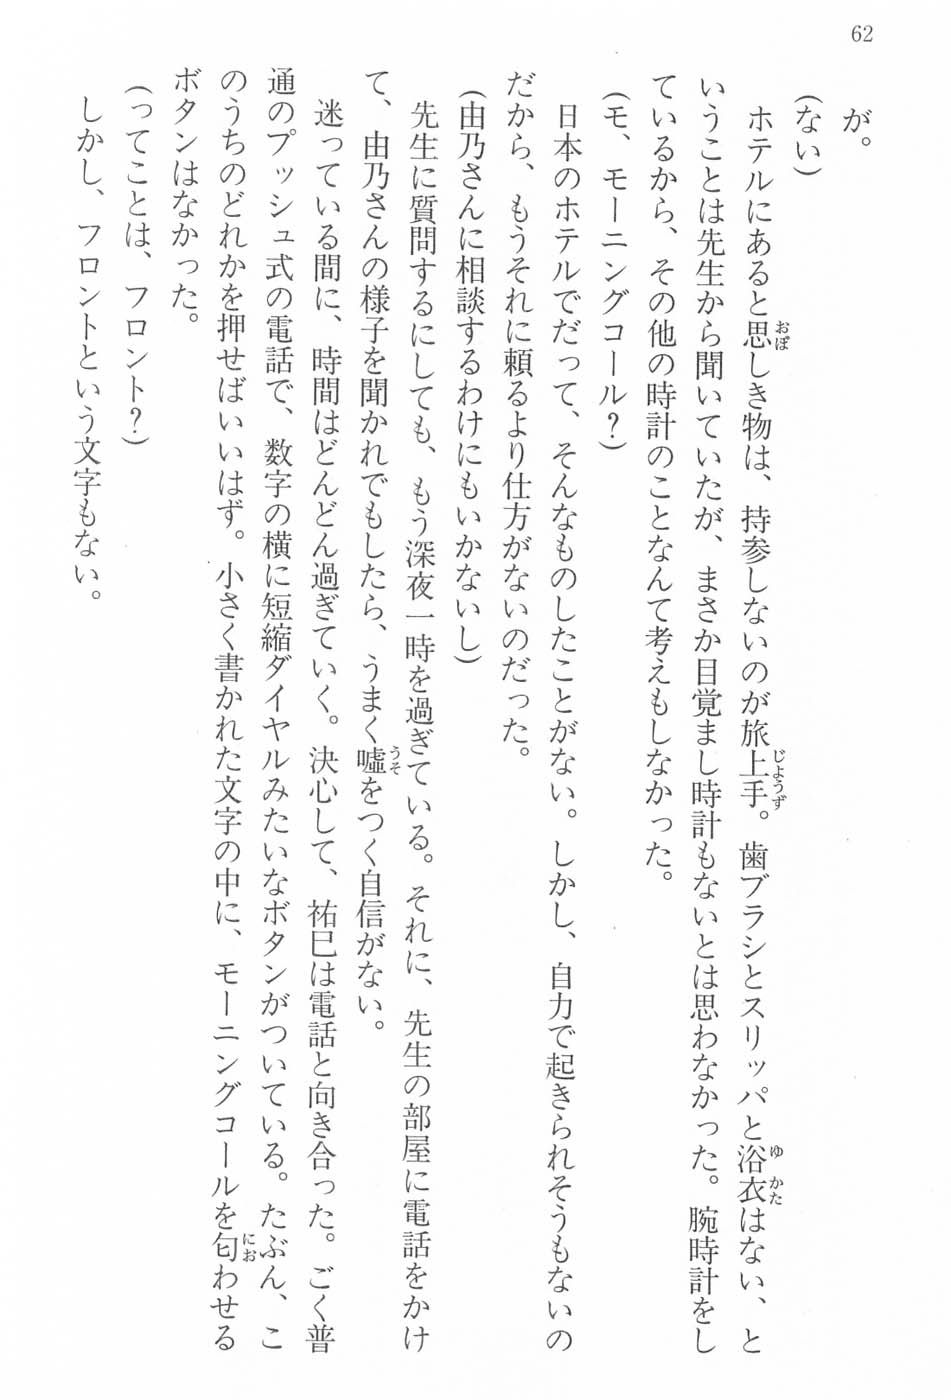 62
が。
(ない)
ホテルにあると思しき物は、持参しないのが旅上手。歯ブラシとスリッパと浴衣はない、と
いうことは先生から聞いていたが、まさか目覚まし時計もないとは思わなかった。腕時計をし
ているから、その他の時計のことなんて考えもしなかった。
(モ、モーニングコール?)
日本のホテルでだって、そんなものしたことがない。しかし、自力で起きられそうもないの
だから、もうそれに頼るより仕方がないのだった。
(由乃さんに相談するわけにもいかないし)
先生に質問するにしても、もう深夜一時を過ぎている。それに、先生の部屋に電話をかけ
て、由乃さんの様子を聞かれでもしたら、うまく嘘をつく自信がない。
迷っている間に、時間はどんどん過ぎていく。決心して、祐巳は電話と向き合った。ごく普
通のプッシュ式の電話で、数字の横に短縮ダイヤルみたいなボタンがついている。たぶん、こ
のうちのどれかを押せばいいはず。小さく書かれた文字の中に、モーニングコールを匂わせる
ボタンはなかった。
(ってことは、フロント?)
しかし、フロントという文字もない。